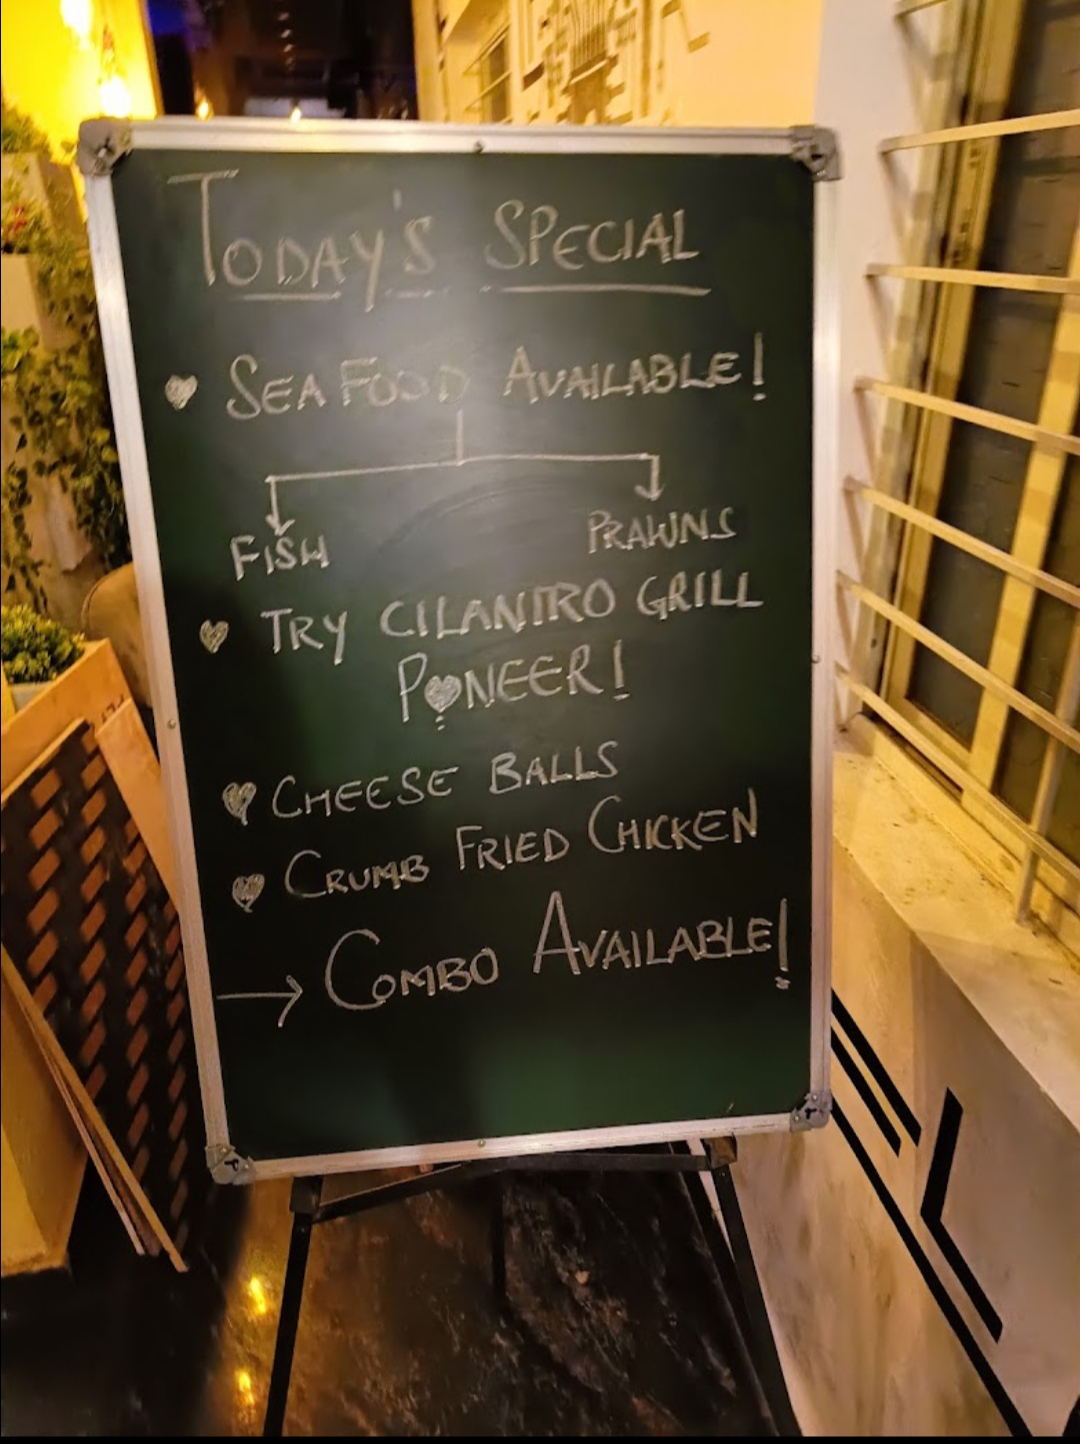 TODAY'S SPECIAL
SEA FOOD AVAILABLE!
FISH PRAWNS
TRY CILANTRO GRILL
P♥NEER!
CHEESE BALLS
CRUMB FRIED CHICKEN
→ COMBO AVAILABLE!